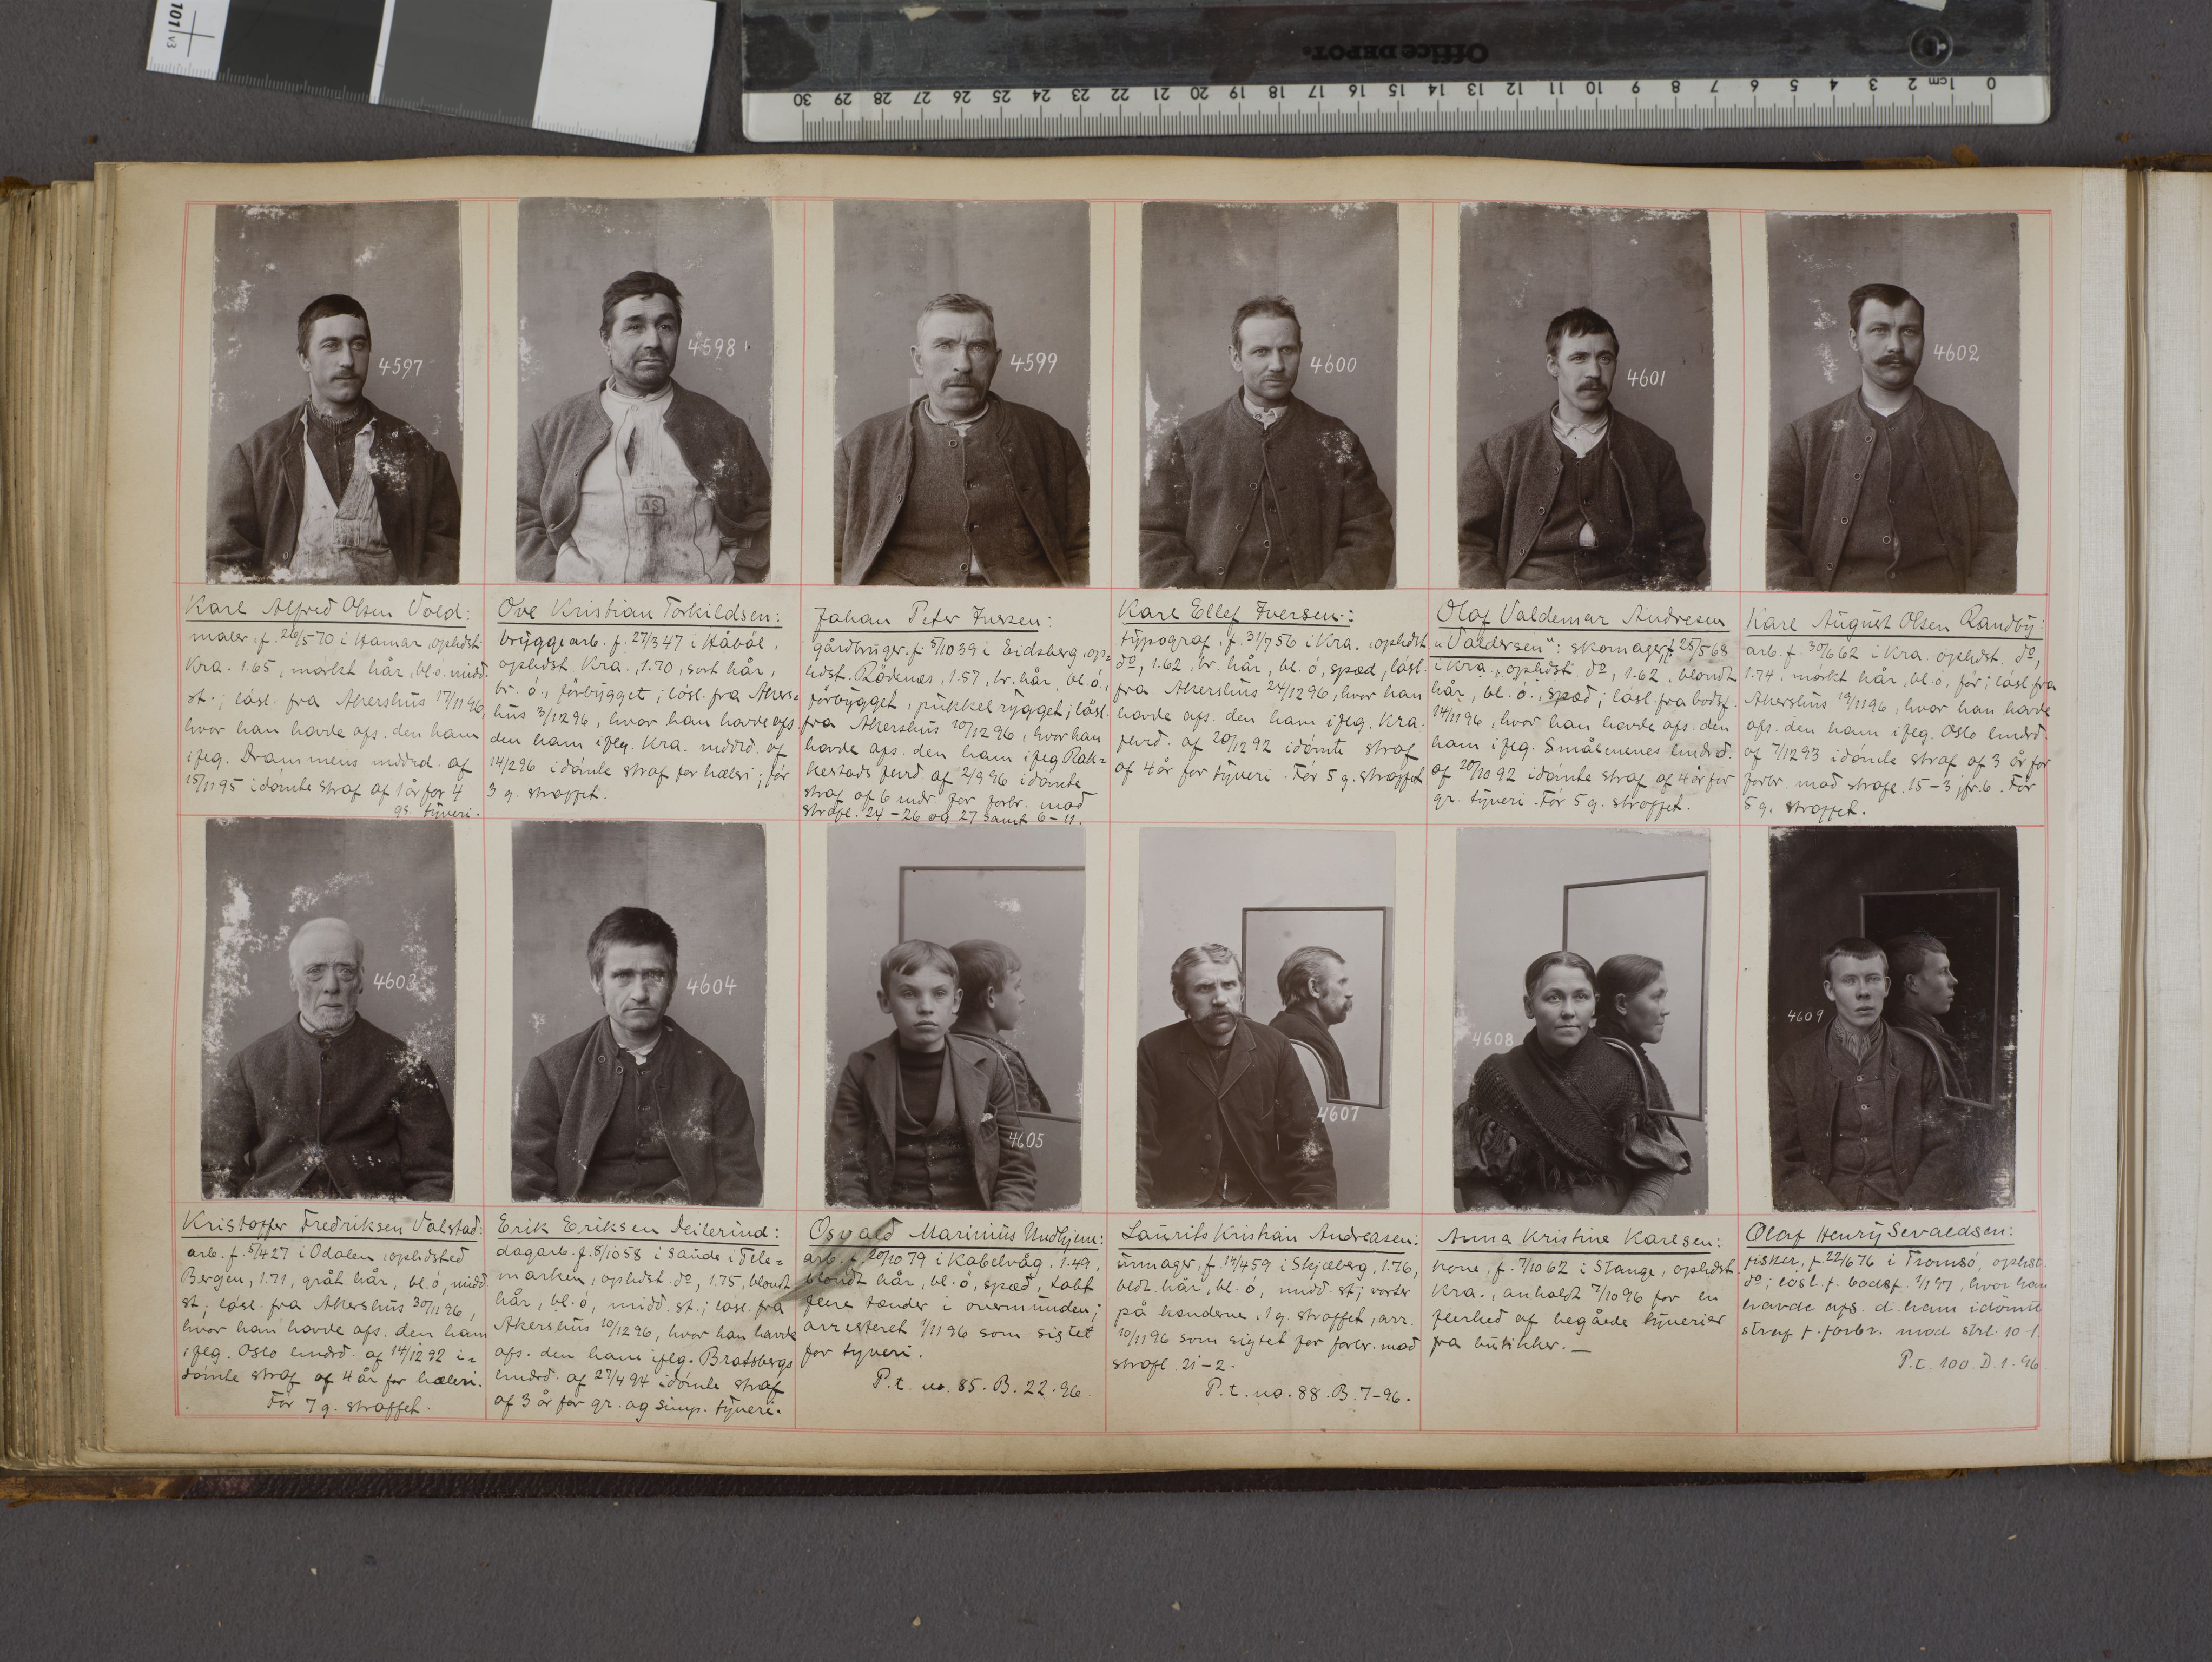 101 v3
Office DEPOT.
0 1cm 2 3 4 5 6 7 8 9 10 11 12 13 14 15 16 17 18 19 20 21 22 23 24 25 26 27 28 29 30
4597
4598
AS
4599
4600
4601
4602
Karl Alfred Olsen Vold:
maler, f. 26/5 70 i Hamar, opholdst.
Kra. 1.65, mørkt hår, bl. ö. midd.
st.; løsl. fra Akershus 17/11 96,
hvor han havde afs. den ham
iflg. Drammens meddrd. af
15/11 95 idømte straf af 1 år for 4
gs. tyveri.
Ove Kristian Torkildsen:
bryggearb. f. 27/3 47 i Håbøl,
opholdst. Kra., 1.70, sort hår,
br. ö., førbygget; løsl. fra Akers=
hus 3/12 96, hvor han havde afs.
den ham iflg. Kra. meddrd. af
14/2 96 idømte straf for hæleri; før
3 g. straffet.
Johan Peter Iversen:
gårdbruger. f. 5/10 39 i Eidsberg, op=
hdst. Rödenes, 1.57, br. hår, bl. ö.,
førbygget, pukkelrygget; løsl.
fra Akershus 10/12 96, hvor han
havde afs. den ham iflg. Rak=
kestads fvrd. af 2/9 96 idømte
straf af 6 mdr for forbr. mod
strafl. 24-26 og 27 samt 6-11.
Karl Ellef Iversen:
typograf, f. 31/7 56 i Kra., opholdst
do, 1.62, br. hår, bl. ö, spæd, løsl.
fra Akershus 24/12 96, hvor han
havde afs. den ham iflg. Kra.
fvrd. af 20/12 92 idømte straf
af 4 år for tyveri. Før 5 g. straffet
Olaf Valdemar Andresen
"Valdersen": skomager, f. 25/5 68
i Kra., opholdst. do, 1.62, blondt
hår, bl. ö., spæd; løsl. fra bodsf.
14/11 96, hvor han havde afs. den
ham iflg. Smålenenes lmdrd.
af 20/10 92 idømte straf af 4 år for
gr. tyveri. Før 5 g. straffet.
Karl August Olsen Randby:
arb. f. 30/6 62 i Kra. opholdst. do,
1.74, mørkt hår, bl. ö, før; løsl fra
Akershus 19/11 96, hvor han havde
afs. den ham iflg. Oslo lmdrd.
af 7/12 93 idømte straf af 3 år for
forbr. mod strafl. 15-3, jfr. 6. Før
5 g. straffet.
4603
4604
4605
4607
4608
4609
Kristoffer Fredriksen Valstad:
arb. f. 5/4 27 i Odalen, opholdsted
Bergen, 1.71, gråt hår, bl. ö, midd
st; løsl. fra Akershus 30/11 96,
hvor han havde afs. den ham
iflg. Oslo lmdrd. af 14/12 92 i=
dømte straf af 4 år for hæleri.
Før 7 g. straffet.
Erik Eriksen Deilerind:
dagarb. f. 8/10 58 i Saude i Tele=
marken, opholdst. do, 1.75, blondt
hår, bl. ö, midd. st.; løsl. fra
Akershus 10/12 96, hvor han havde
afs. den ham iflg. Bratsbergs
lmdrd. af 27/4 94 idømte straf
af 3 år for gr. og simp. tyveri.
Osvald Marinius Undhjem:
arb. f. 20/10 79 i Kabelvåg, 1.49,
blondt hår, bl. ö, spæd, tabt
flere tænder i overmunden;
arresteret 1/11 96 som sigtet
for tyveri.
P.t. no. 85. B. 22. 96.
Laurits Kristian Andreasen:
urmager, f. 14/4 59 i Skjeberg, 1.76,
bldt. hår, bl. ö, midd. st; vorter
på hænderne, 1 g. straffet, arr.
10/11 96 som sigtet for forbr. mod
strafl. 21-2.
P.t. no. 88. B. 7-96.
Anna Kristine Karlsen:
kone, f. 7/10 62 i Stange, opholdst
Kra., anholdt 7/10 96 for en
flerhed af begåede tyverier
fra butikker. —
Olaf Henry Sevaldsen:
fisker, f. 22/6 76 i Tromsö, opholdst.
do; løsl. f. bodsf. 9/1 97, hvor han
havde afs. d. ham idømte
straf f. forbr. mod strl. 10-1.
P.t. 100. D. 1. 96